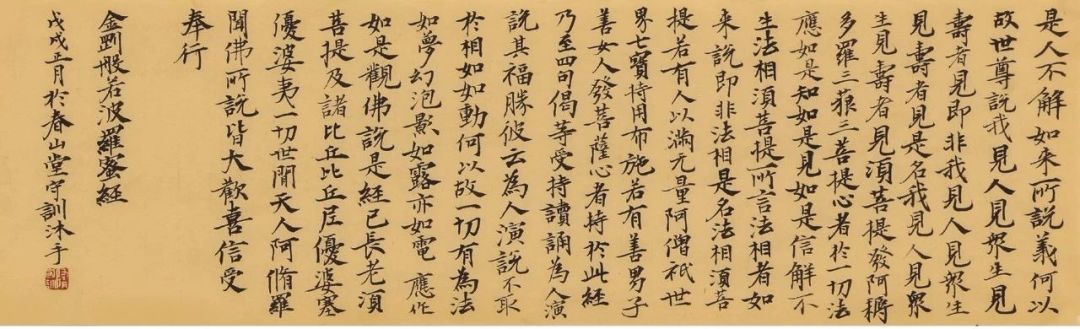 是人不解如来所說義何以
故世尊說我見人見眾生見
壽者見即非我見人見眾生
見壽者見是名我見人見眾
生見壽者見須菩提發阿耨
多羅三藐三菩提心者於一切法
應如是知如是見如是信解不
生法相須菩提所言法相者如
来說即非法相是名法相須菩
提若有人以滿无量阿僧祇世
界七寶持用布施若有善男子
善女人發菩薩心者持於此經
乃至四句偈等受持讀誦為人演
說其福勝彼云為人演說不取
於相如如動何以故一切有為法
如夢幻泡影如露亦如電 應作
如是觀佛說是經已長老須
菩提及諸比丘比丘尼優婆塞
優婆夷一切世間天人阿脩羅
聞佛所說皆大歡喜信受
奉行
金剛般若波羅蜜經
戊戌正月於春山堂守訓沐手